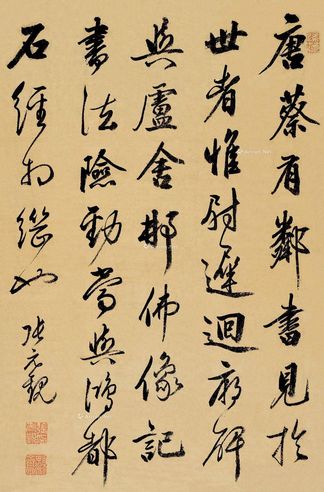 唐蔡有鄰書見於
世者惟尉遲迴廟碑
與盧舍那佛像記
書法險勁當與鴻都
石經相繼也
張元